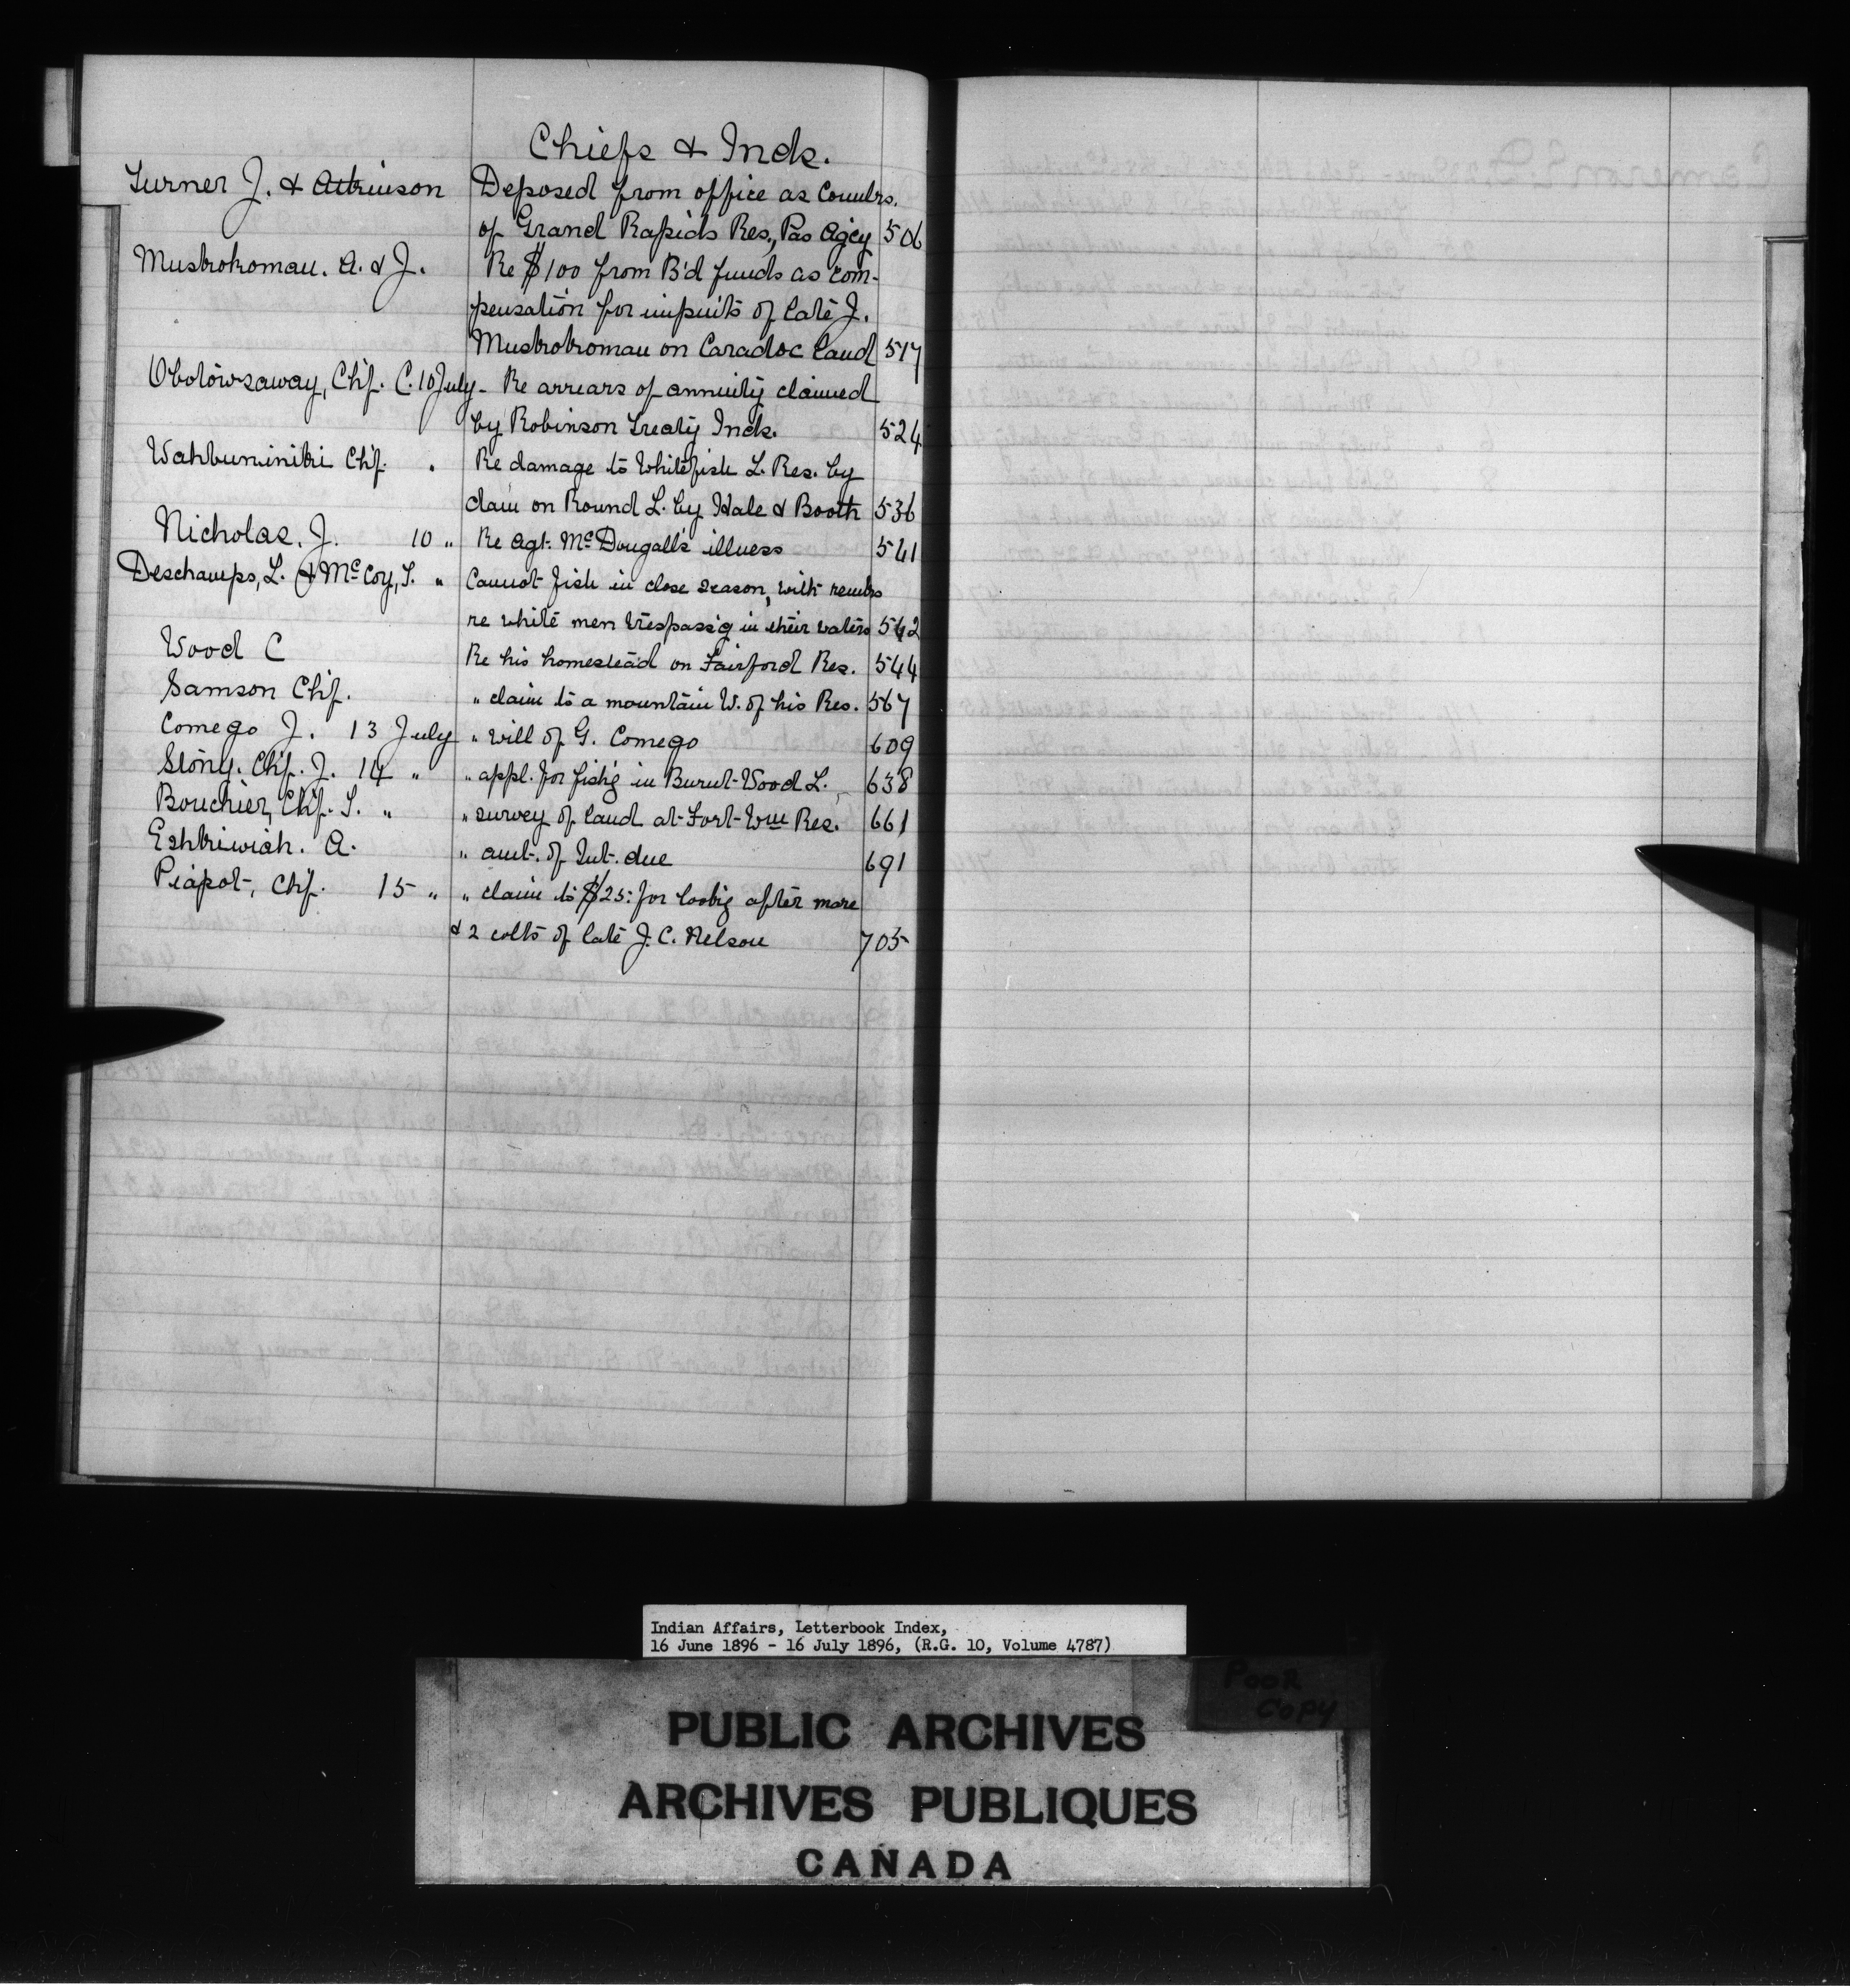 Chiefs & Inds.
Turner J. & Atkinson Deposed from office as Counlrs.
of Grand Rapids Res., Pas Agcy 506
Muskokoman. A. & J. Re $100 from B'd funds as com-
pensation for impnits of late J.
Muskokoman on Caradoc land 517
Obotowsaway, Chf. C. 10 July - Re arrears of annuity claimed
by Robinson Treaty Inds. 524
Wahbuminiki Chf. " Re damage to Whitefish L. Res. by
dam on Round L. by Hale & Booth 536
Nicholas. J. 10 " Re Agt. McDougall's illness 541
Deschamps, L. & McCoy, T. " Cannot fish in close season, with remks
re white men trespass'g in their waters 542
Wood C Re his homestead on Fairford Res. 544
Samson Chf. " claim to a mountain W. of his Res. 567
Comego J. 13 July " will of G. Comego 609
Stony. Chf. J. 14 " " appl. for fish'g in Burnt-Wood L. 638
Bouchier, Chf. S. " " survey of land at Fort-Wm Res. 661
Eshkiwiah. A. " amt. of Int. due 691
Piapot, Chf. 15 " " claim to $25: for look'g after mare
& 2 colts of late J. C. Nelson 705
Indian Affairs, Letterbook Index,
16 June 1896 - 16 July 1896, (R.G. 10, Volume 4787)
POOR
COPY
PUBLIC ARCHIVES
ARCHIVES PUBLIQUES
CANADA